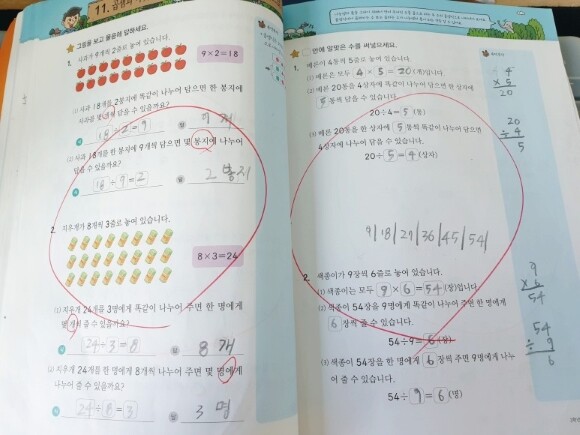 11. 곱셈과
그림을 보고 물음에 답하세요.
1. 사과가 9개씩 2줄로 놓여 있습니다.
9×2=18
(1) 사과 18개를 2봉지에 똑같이 나누어 담으면 한 봉지에
사과를 몇 개씩 담을 수 있을까요?
18÷2=9 답
(2) 사과 18개를 한 봉지에 9개씩 담으면 몇 봉지에 나누어
담을 수 있을까요?
18÷9=2 답 2 봉지
2. 지우개가 8개씩 3줄로 놓여 있습니다.
8×3=24
(1) 지우개 24개를 3명에게 똑같이 나누어 주면 한 명에게
몇 개씩 줄 수 있을까요?
24÷3=8 답 8개
(2) 지우개 24개를 한 명에게 8개씩 나누어 주면 몇 명에게
나누어 줄 수 있을까요?
24÷8=3 답 3명
안에 알맞은 수를 써넣으세요.
1. 배론이 4통씩 5줄로 놓여 있습니다.
(1) 메론은 모두 4×5=20(개)입니다.
(2) 메론 20통을 4상자에 똑같이 나누어 담으면 한 상자에
5통씩 담을 수 있습니다.
20÷4=5(통)
(3) 메론 20통을 한 상자에 5통씩 똑같이 나누어 담으면
4상자에 나누어 담을 수 있습니다.
20÷5=4(상자)
9|18|27|36|45|54|
2. 색종이가 9장씩 6줄로 놓여 있습니다.
(1) 색종이는 모두 9×6=54(장)입니다.
(2) 색종이 54장을 9명에게 똑같이 나누어 주면 한 명에게
6장씩 줄 수 있습니다.
54÷9=6(장)
(3) 색종이 54장을 한 명에게 6장씩 주면 9명에게 나누
어 줄 수 있습니다.
54÷9=6(명)
4
×5
20
20
÷4
5
9
×6
54
54
÷9
6